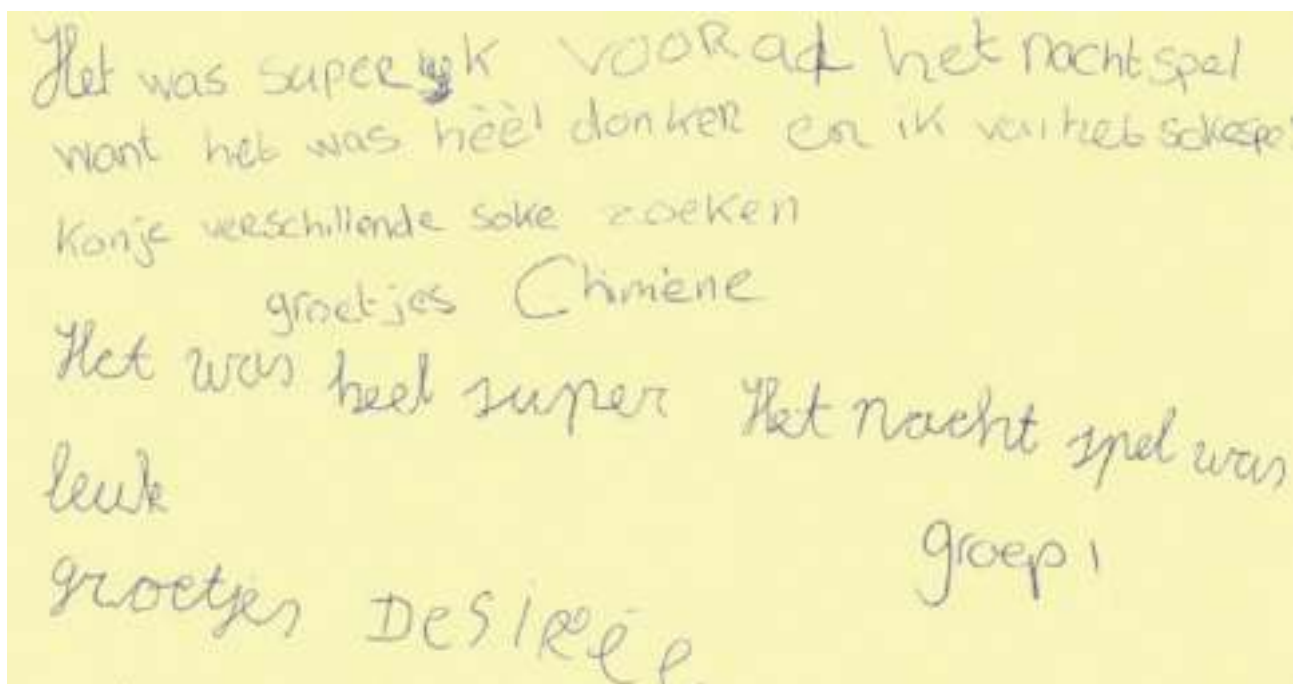 Het was super voorad het nachtspel
want het was hèèl donker en ik het sokespel
Konje verschillende soke zoeken
groetjes Chimène
Het was heel super Het nacht spel was
leuk
groep 1
groetjes DESIRÉE